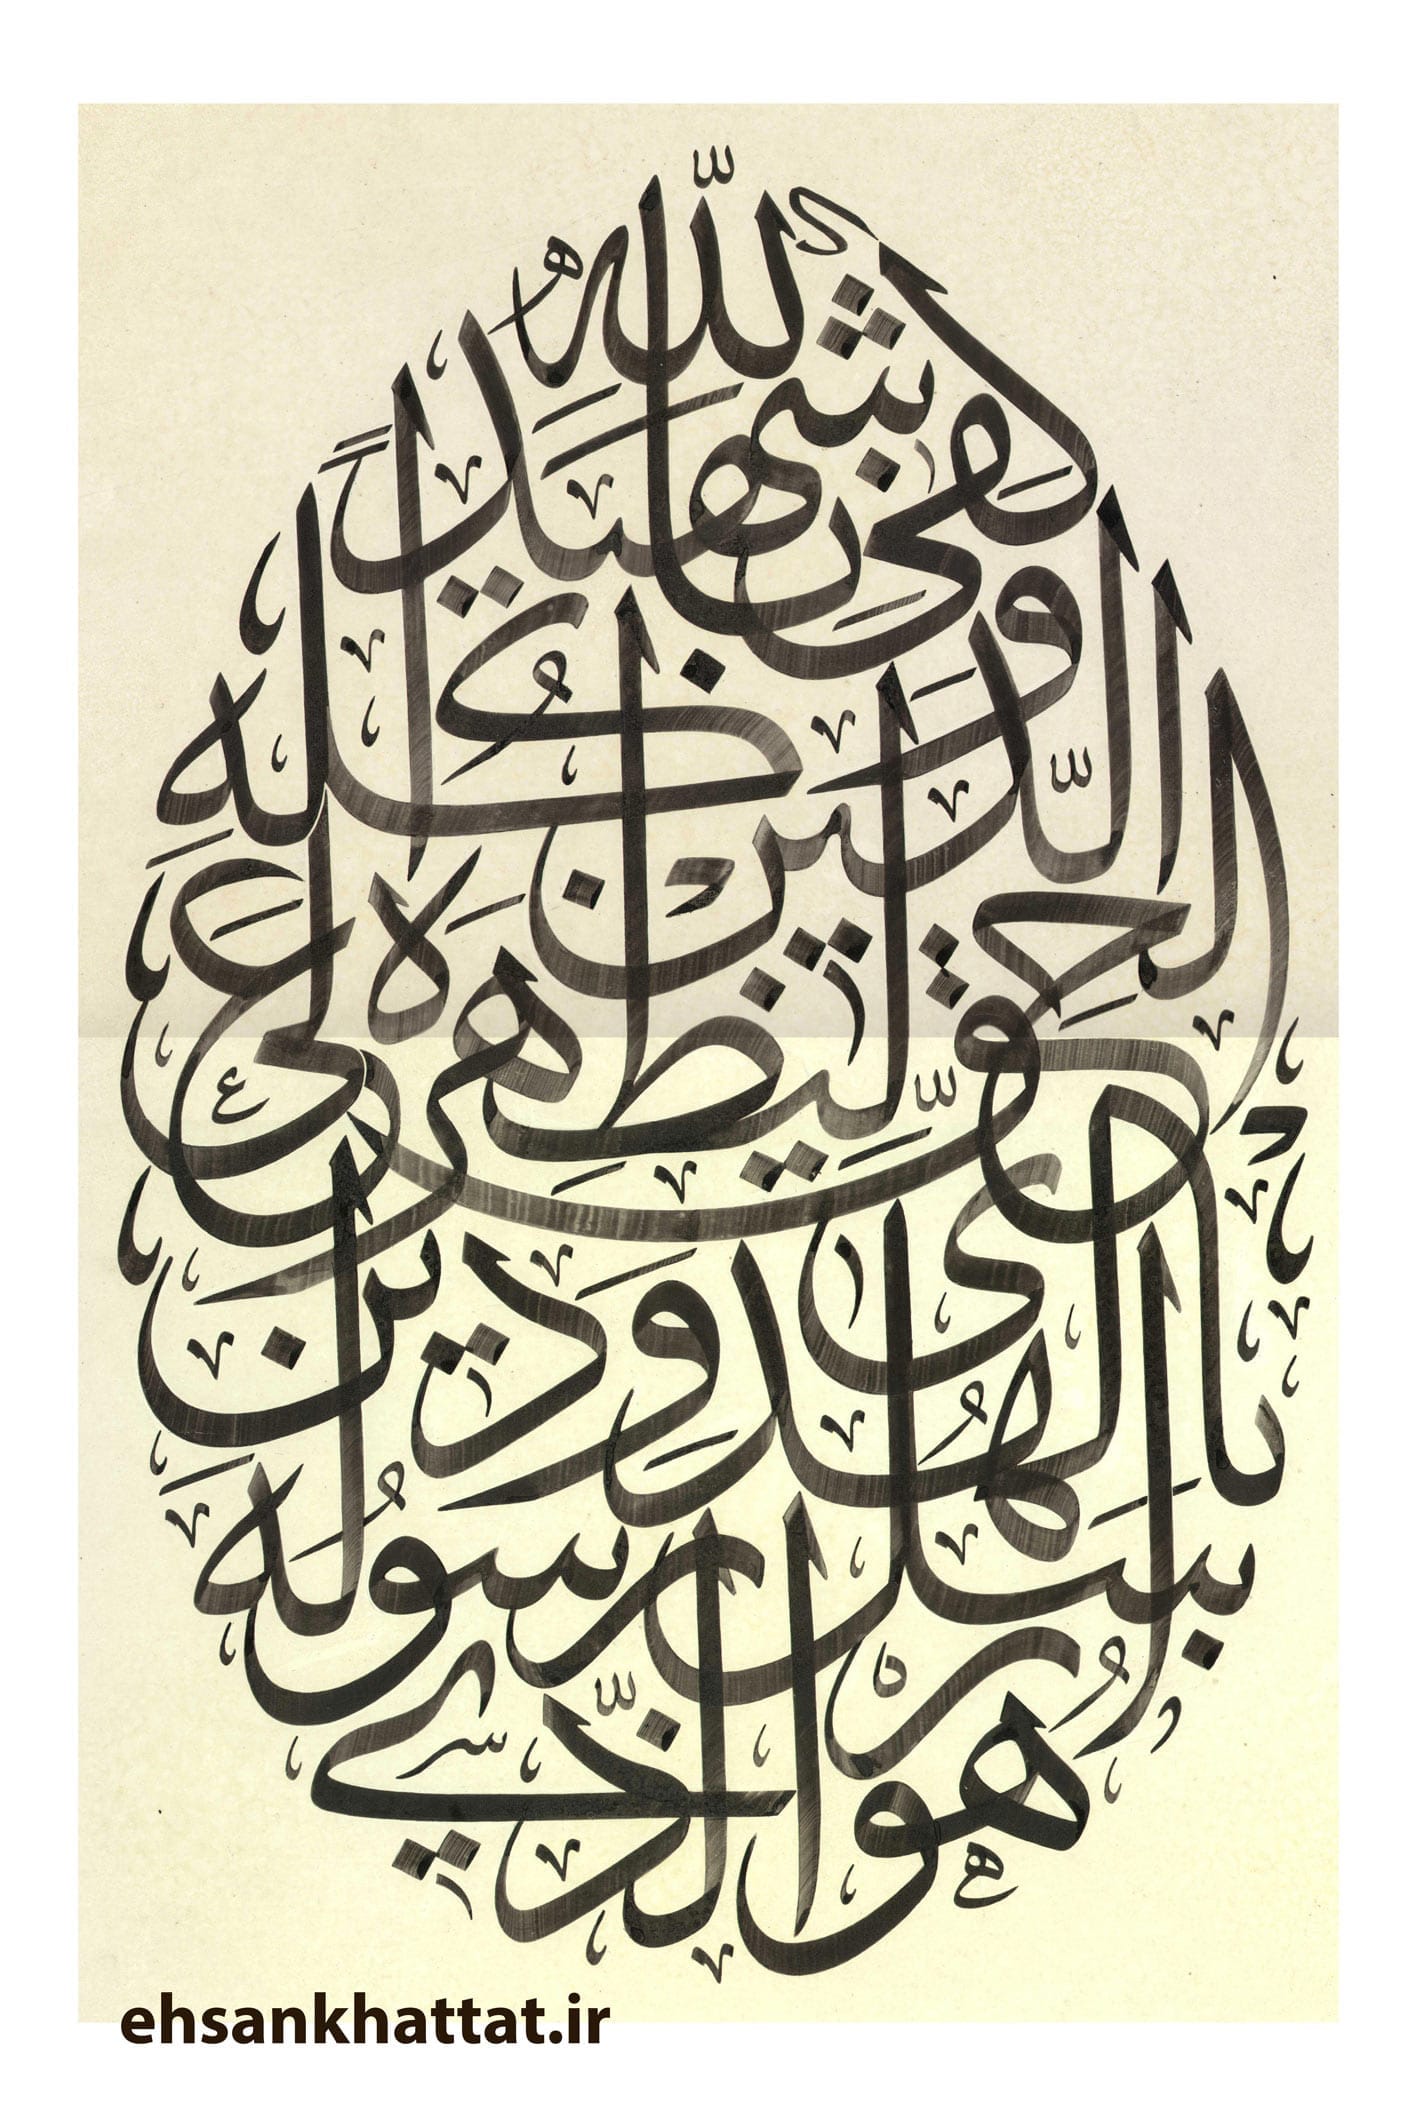 هُوَ الَّذِي
أَرْسَلَ رَسُولَهُ
بِالْهُدَى وَدِينِ
الْحَقِّ لِيُظْهِرَهُ عَلَى
الدِّينِ كُلِّهِ
وَكَفَى بِاللَّهِ شَهِيدًا
ehsankhattat.ir